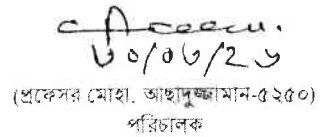 ৩০/০৬/২৬
(প্রফেসর মোহা. আছাদুজ্জামান-৫২৫০)
পরিচালক